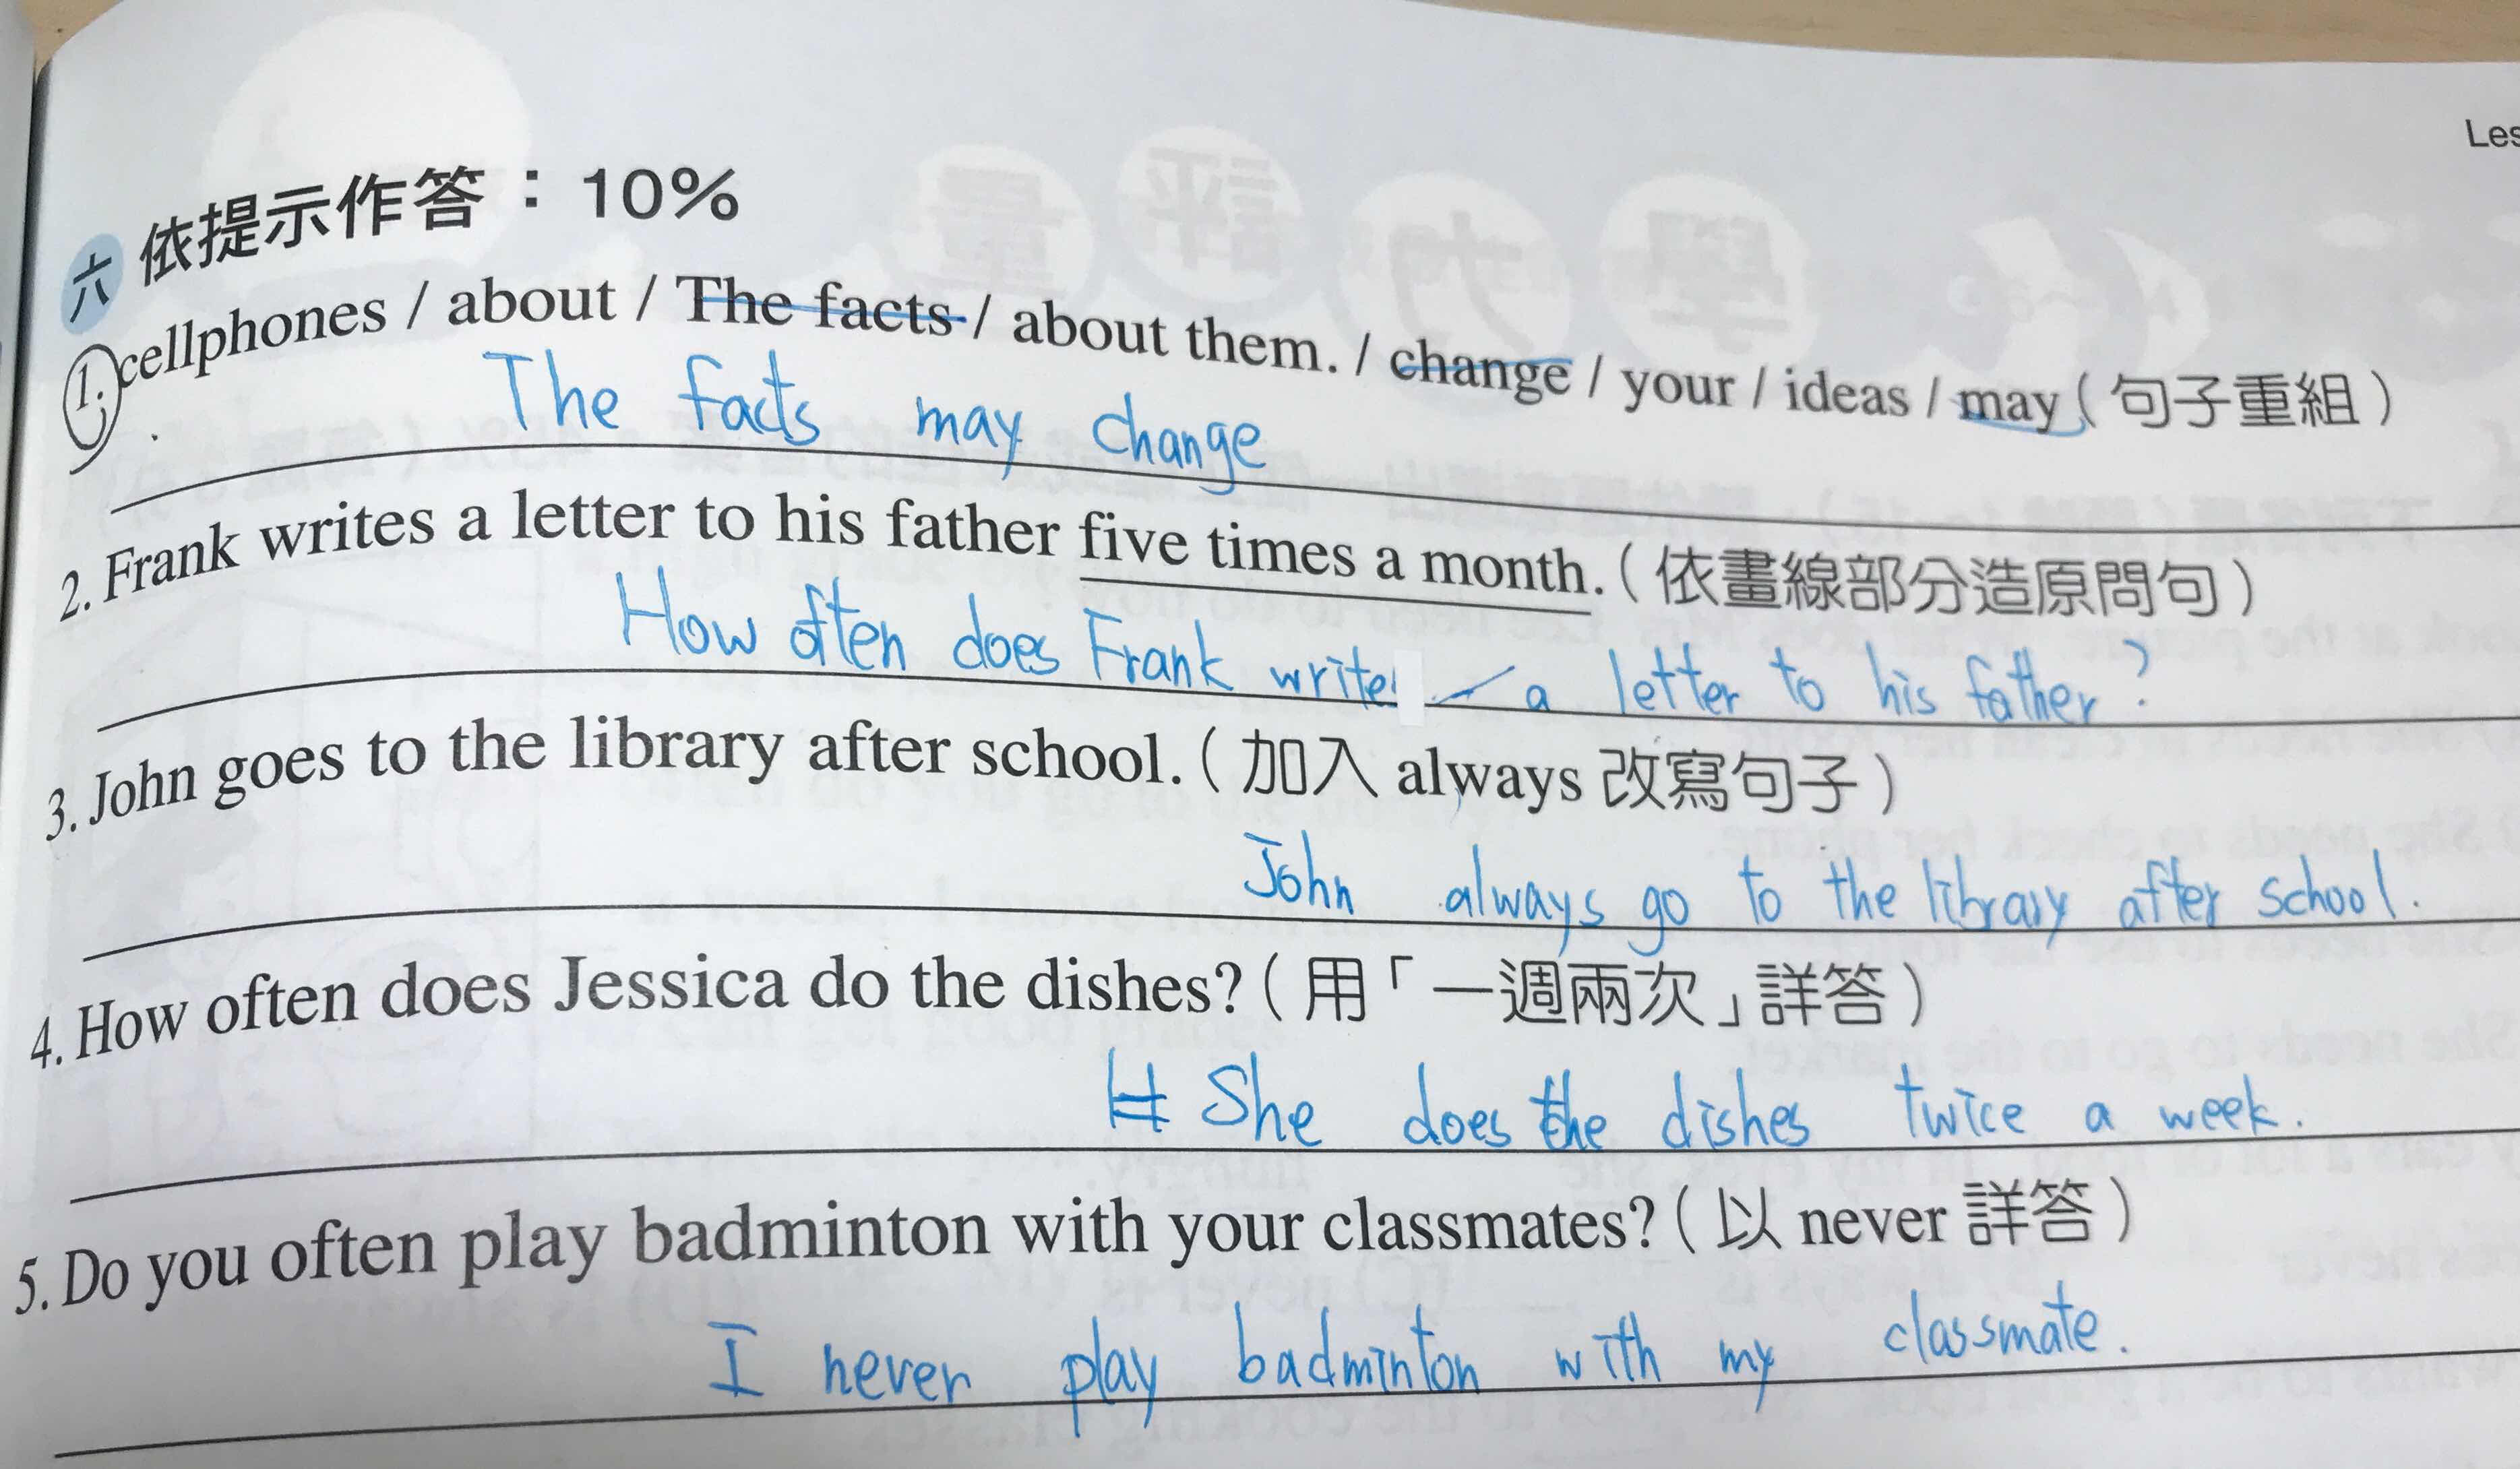 Les
六 依提示作答：10%
1. cellphones / about / The facts / about them. / change / your / ideas / may (句子重組)
The facts may change
2. Frank writes a letter to his father five times a month. (依畫線部分造原問句)
How often does Frank write a letter to his father?
3. John goes to the library after school. (加入 always 改寫句子)
John always go to the library after school.
4. How often does Jessica do the dishes? (用「一週兩次」詳答)
She does the dishes twice a week.
5. Do you often play badminton with your classmates? (以 never 詳答)
I never play badminton with my classmate.